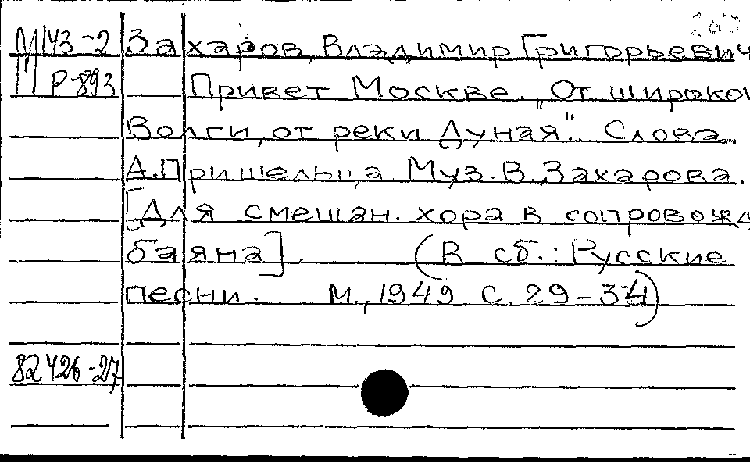 М43-2 Захаров, Владимир Григорьевич
Р-893 Привет Москве. „От широко
Волги, от реки Дуная". Слова
А.Пришельца. Муз. В.Захарова.
[Для смешан. хора в сопровожд
баяна] (В сб.: Русские
песни. М., 1949 С. 29-34)
82426-27